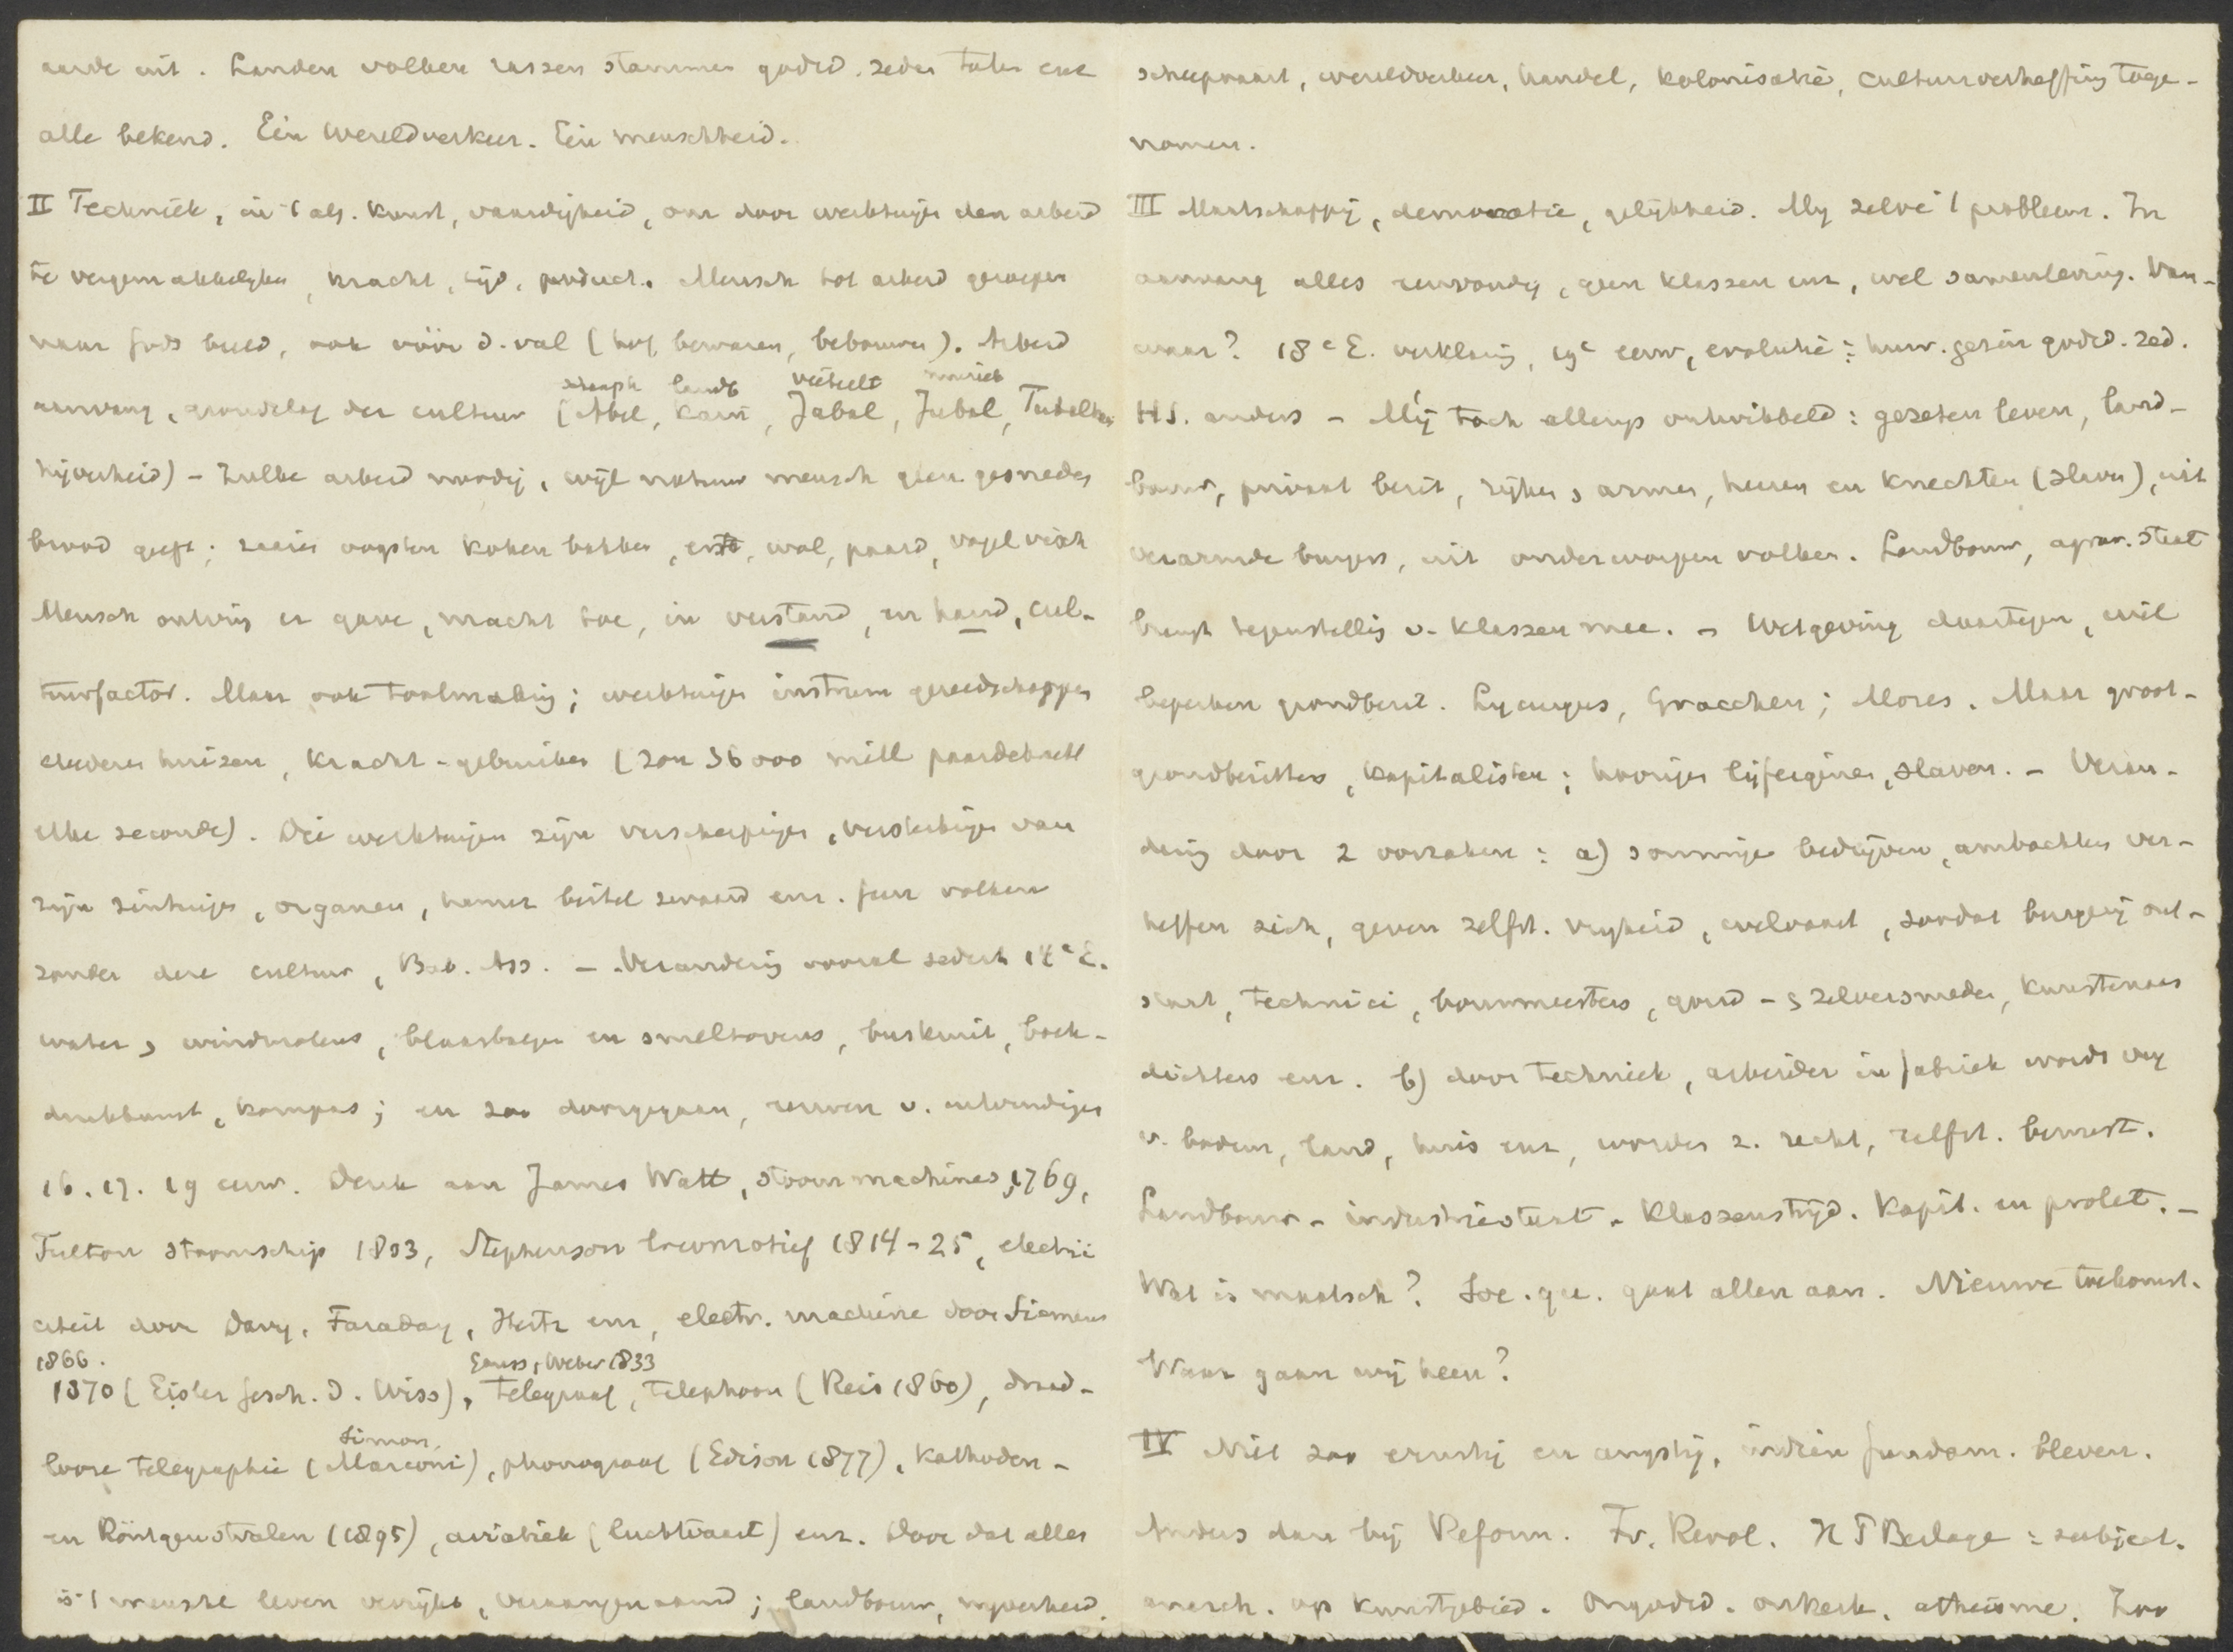 aarde uit. Landen volken rassen stammen godsd. zeden talen enz
alle bekend. Eén Wereldverkeer. Eén menschheid.
II Techniek, in 't alg. kunst, vaardigheid, om door werktuigen den arbeid
te vergemakkelyken, kracht, tijd, product. Mensch tot arbeid geroepen
naar Gods beeld, ook vóór d. val (hof bewaren, bebouwen). Arbeid
schaaph landb veeteelt muziek
aanvang, grondslag der cultuur (Abel, Kain, Jabal, Jubal, Tubalkain
nijverheid) - Zulke arbeid noodig, wijl natuur mensch geen gesneden
brood geeft; zaaien oogsten koken bakken, erts, wol, paard, vogel visch
Mensch ontving er gave, macht toe, in verstand, en hand, cul-
tuurfactor. Maar ook toolmaking; werktuigen instrum gereedschappen
kleederen huizen, kracht-gebruiken (zon 36000 mill paardekracht
elke seconde). Die werktuigen zijn verscherpingen, versterkingen van
zijn zintuigen, organen, hamer beitel zwaard enz. Geen volken
zonder deze cultuur, Bab. Ass. - Verandering vooral sedert 14e E.
water & windmolens, blaasbalgen en smeltovens, buskruit, boek-
drukkunst, kompas; en zoo doorgegaan, eeuwen v. uitvindingen
16. 17. 19 eeuw. Denk aan James Watt, stoommachines, 1769,
Fulton stoomschip 1803, Stephenson locomotief 1814-25, electri
citeit door Davy, Faraday, Hertz enz, electr. machine door Siemens
1866. Gauss, Weber 1833
1870 (Eisler Gesch. d. Wiss), telegraaf, telephoon (Reis 1860), draad-
Simon,
looze telegraphie (Marconi), phonograaf (Edison 1877), Kathoden-
en Röntgenstralen (1895), aviatiek (luchtvaart) enz. Door dat alles
is 't mensche leven verrijkt, veraangenaamd; landbouw, nyverheid,
scheepvaart, wereldverkeer, handel, kolonisatie, cultuurverheffing toege-
nomen.
III Maatschappij, democratie, gelijkheid. Mij zelve 't probleem. In
aanvang alles eenvoudig, geen klassen enz, wel samenleving. Van-
waar? 18e E. verklaring, 19e eeuw, evolutie: huw. gezin godsd. zed.
HS. anders - Mij toch allengs ontwikkeld: gezeten leven, land-
bouw, privaat bezit, rijken & armen, heeren en knechten (slaven), uit
verarmde burgers, uit onderworpen volken. Landbouw, agrar. staat
brengt tegenstelling v. klassen mee. - Wetgeving daartegen, wil
beperken grondbezit. Lycurgus, Gracchen; Mozes. Maar groot-
grondbezitters, kapitalisten; hoorigen lijfeigenen, slaven. - Veran-
dering door 2 oorzaken: a) sommige bedrijven, ambachten ver-
heffen zich, geven zelfst. vryheid, welvaart, zoodat burgerij ont-
staat, technici, bouwmeesters, goud- & zilversmeden, kunstenaars
dichters enz. b) door techniek, arbeider in fabriek wordt vry
v. bodem, land, huis enz, worden z. recht, zelfst. bewust.
Landbouw- industriestaat. Klassenstrijd. Kapit. en prolet. -
Wat is maatsch? Soc. qu. gaat allen aan. Nieuwe toekomst.
Waar gaan wij heen?
IV Niet zoo ernstig en angstig, indien fundam. bleven.
Anders dan bij Reform. Fr. Revol. H P Berlage: subject.
anarch. op kunstgebied. Ongodsd. onkerk. atheisme. Zoo